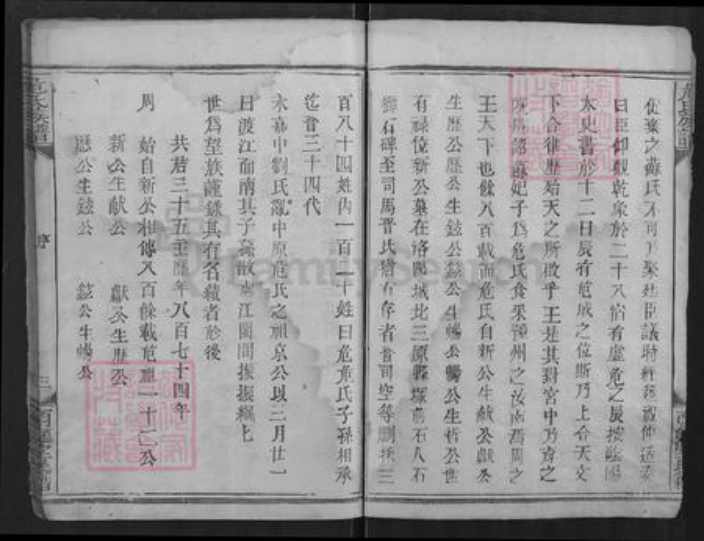 曰臣仰觀乾象於二十八宿有虛危之辰按陰陽
太史書於十二日辰有危成之位斯乃上合天文
下合律歷始天之所啟乎王是其對宮中乃育之
妃子為危氏食采豫州之汝南馮周之
王天下也餘八百載而危氏自新公生獻公獻公
生歷公歷公生鉉公鉉公生暢公暢公生哲公世
有祿位新公墓在洛陽城北三原縣塚前石人石
獸石碑至司馬晉氏猶有存者晉司空等刪揀三
百八十四姓內一百二十姓曰危危氏子孫相承
迄晉三十四代
永嘉中劉氏亂中原危氏之祖京公以三月廿一
日渡江而南其子孫散處江閩間振振繩乙
世為望族謹錄其有名績者於後
共君三十五主歷年八百七十四年
周 始自新公相傳八百餘載危歷二十二公
新公生獻公 獻公生歷公
歷公生鉉公 鉉公生暢公
危氏族譜
序
三
FamilySearch